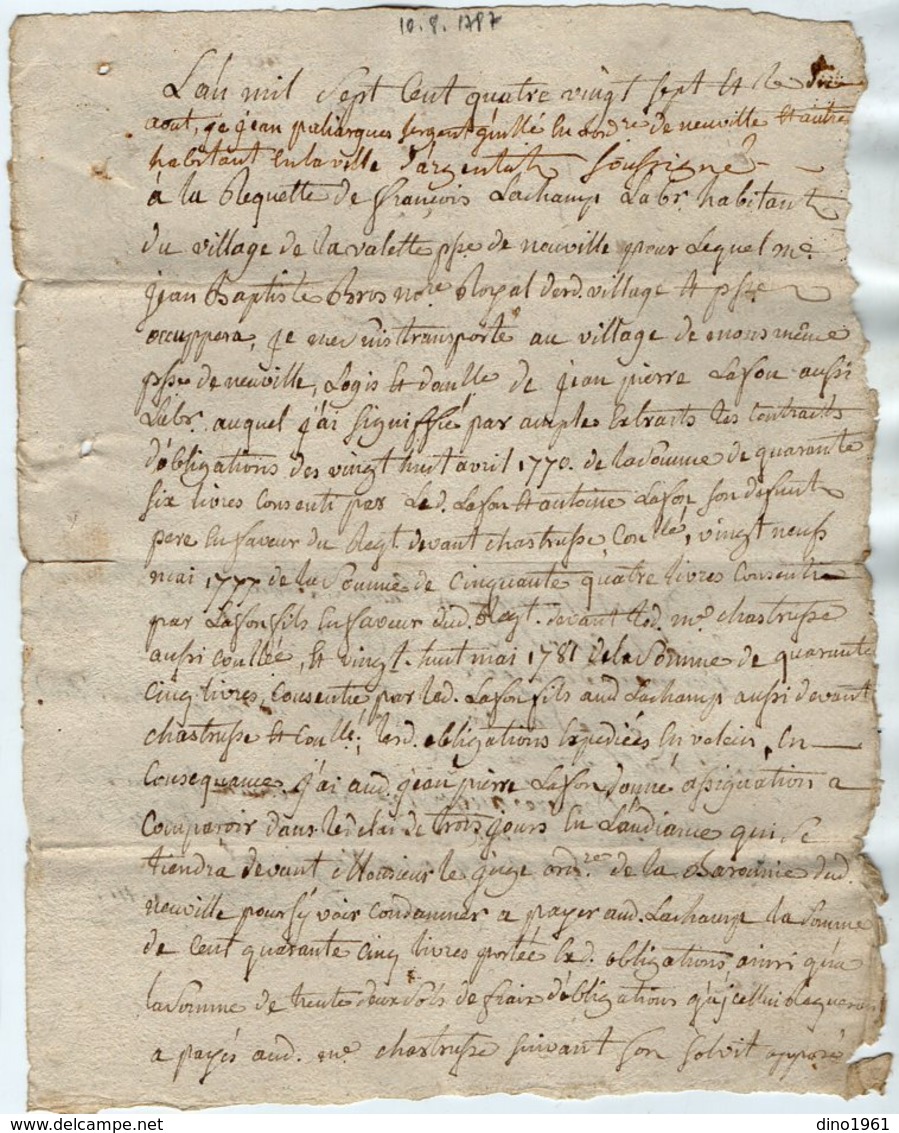 10.8.1787
L'an mil Sept Cent quatre vingt sept Et le dix
aout, je jean paliargues sergent En ord.re de neuville Et autre
habitant En la ville d'argentat Soussigné
à la Requette de françois Lachamp Lab.r habitant
du village de la valette psse de neuville pour Lequel me
jean Baptiste Bros no.re Royal dud. village Et psse
occuppera, je me suis transporté au village de monsmême
psse de neuville, Logis Et de jean pierre Lafon aussi
Labr. auquel j'ai signiffié par amples Extraits les Contracts
d'obligations des vingt huit avril 1770. de la Somme de quarante
six livres Consenti par Led. Lafon Et antoine Lafon son defunt
pere En faveur du Reqt. devant chastrusse, Coullé, vingt neuf
mai 1777 de la Somme de Cinquante quatre livres Consentie
par Lafon fils En faveur dud. Reqt. devant led. me chastrusse
aussi coullée, Et vingt huit mai 1781 de la Somme de quarante
Cinq livres, Consentie par led. Lafon fils aud Lachamp aussi devant
chastrusse Et Coullé; lesd. obligations Expediées En valeur, En
Consequance j'ai aud. jean pierre Lafon donné assignation a
Comparoir dans le delai de trois jours En Laudiance qui se
tiendra devant Monsieur le juge ord.re de la Baronnie dud.
neuville pour s'y voir Condamner a payer aud. Lachamp la Somme
de Cent quarante cinq livres portée Esd. obligations, ainsi qu'a
la Somme de trente deux sols de frais d'obligations qu'jcellui Requerant
a payés aud. me. chastrusse suivant son solvit apposé
dino1961